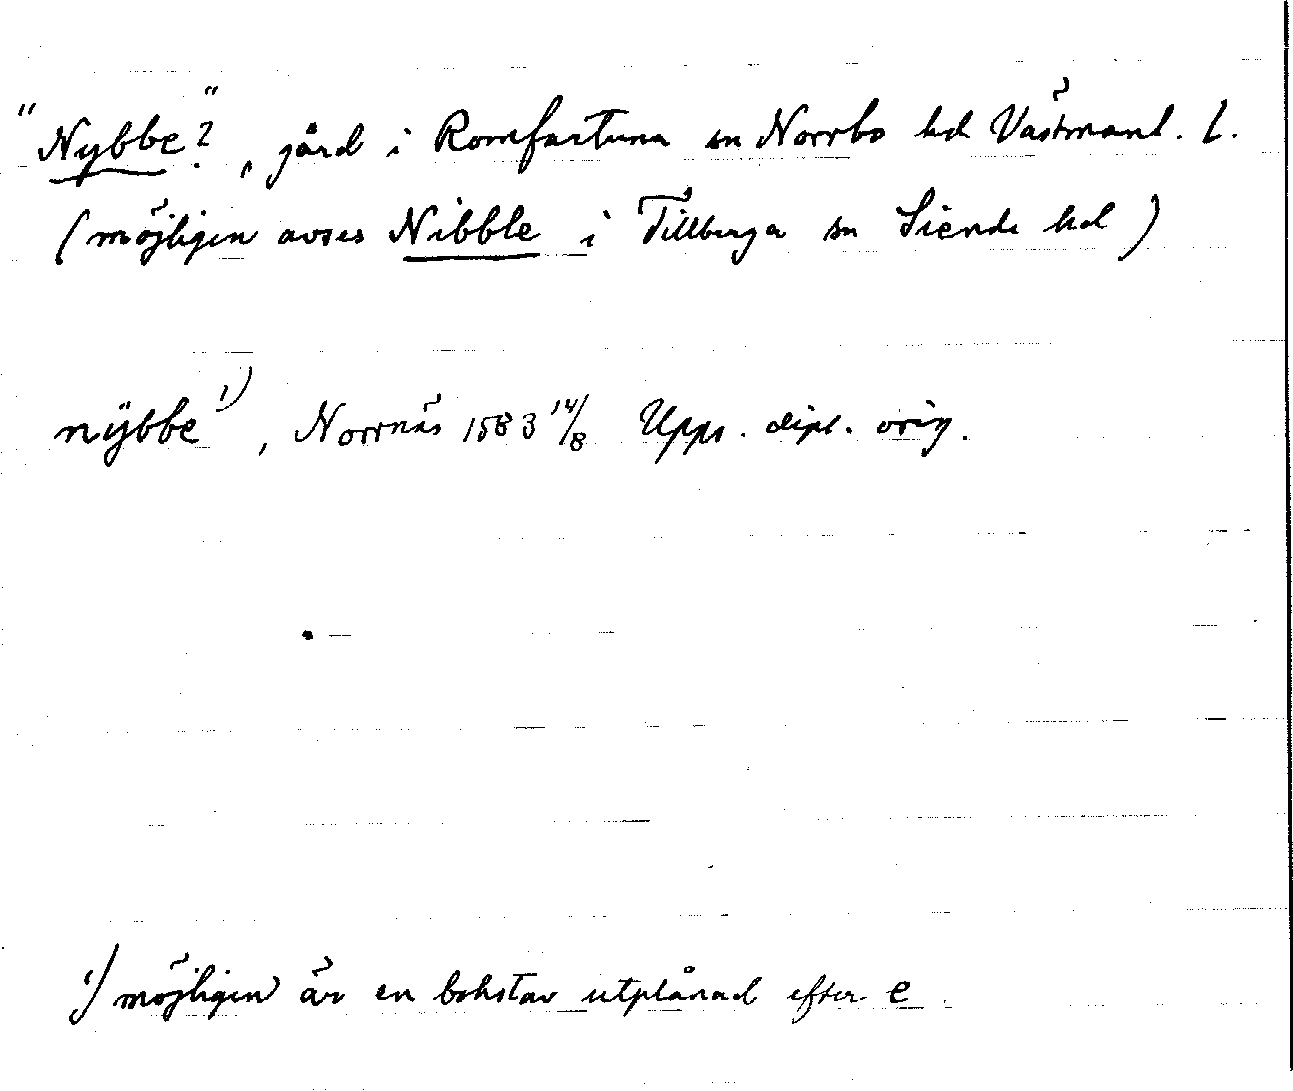 "Nybbe?", gård i Romfartuna sn Norrbo hd Västmanl. l.
(möjligen avses Nibble i Tillberga sn Siende hd)
nÿbbe 1), Norrnäs 1583 14/8 Upps. dipl. orig.
1) möjligen är en bokstav utplånad efter e